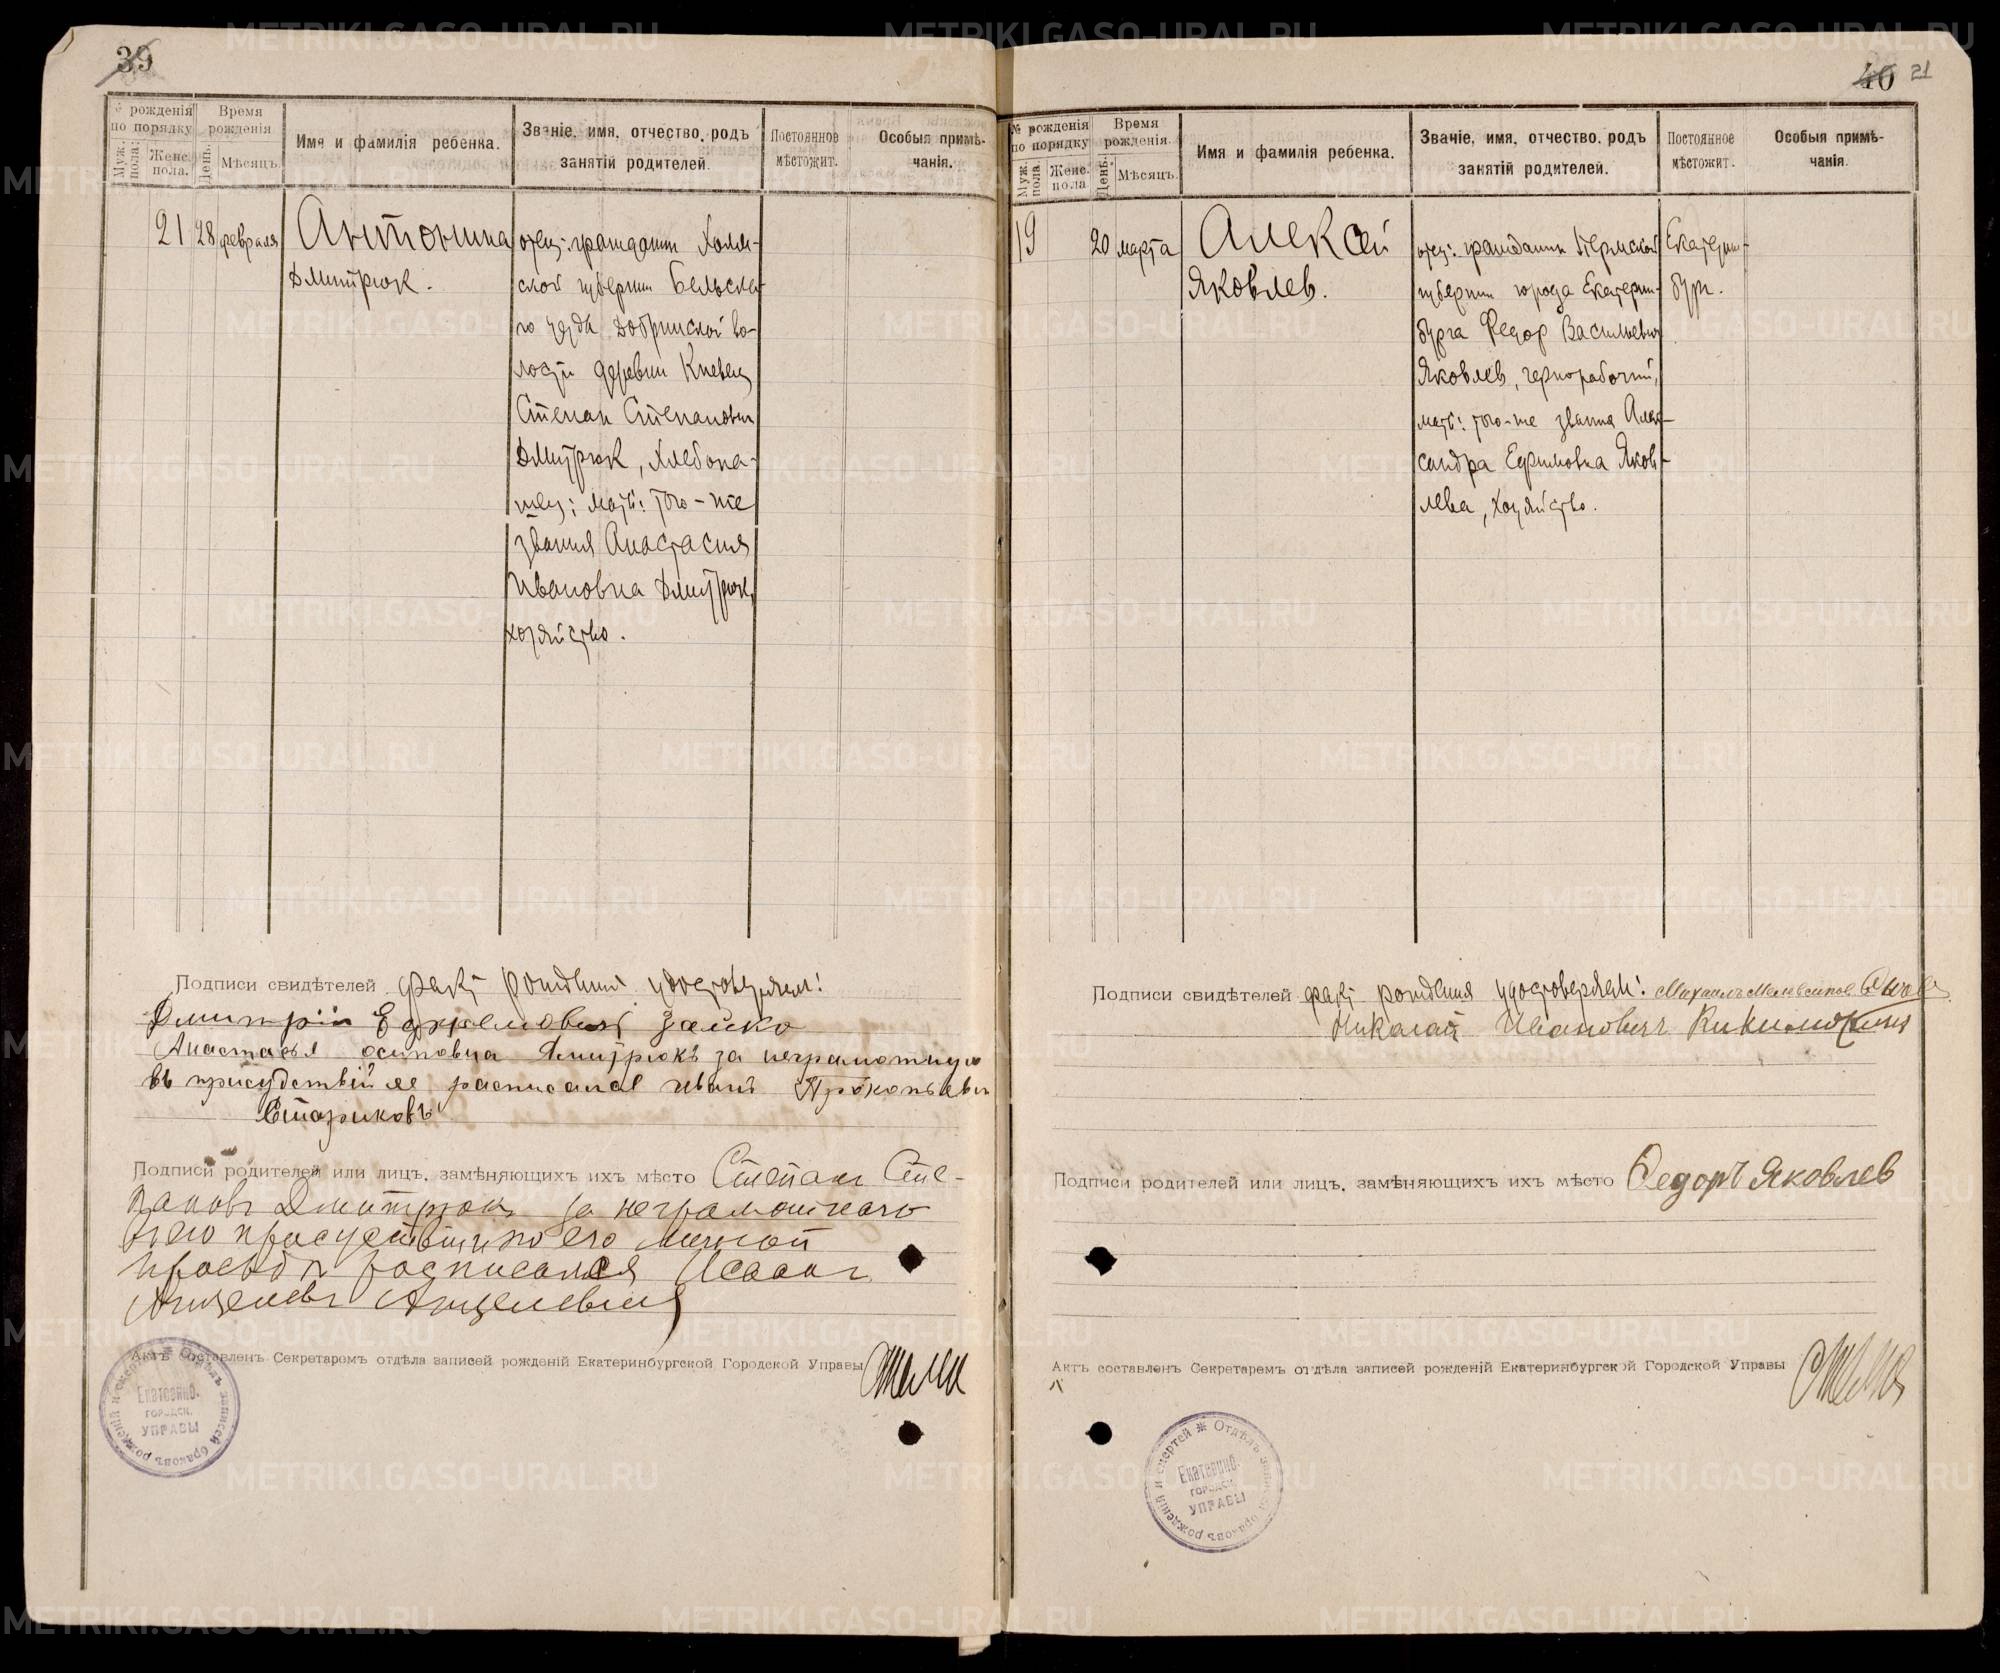 39
№ рожденія по порядку
Муж. пола.
Женс. пола.
Время рожденія
День.
Мѣсяцъ.
Имя и фамилія ребенка.
Званіе, имя, отчество, родъ занятій родителей.
Постоянное мѣстожит.
Особыя примѣчанія.
21 28 февраля
Антонина
Дмитрюк.
отец: гражданин Холм-
ской губернии Бельска-
го уезда Добринской во-
лости деревни Кневец
Степан Степанович
Дмитрюк, хлебопа-
шец; мать: того-же
звания Анастасия
Ивановна Дмитрюк,
хозяйство.
Подписи свидѣтелей факт рождения удостоверяем:
Дмитрій Ефремовичъ Зайко
Анастасья осиповна Дмитрюкъ за неграмотную
въ присудствій ее расписался Иванъ Прокопьевич
Стариковъ
Подписи родителей или лицъ, замѣняющихъ ихъ мѣсто Степанъ Сте-
пановъ Дмитрюкъ за неграмотного
и его присуствии по его личной
просьбѣ росписался
Актъ составленъ Секретаремъ отдѣла записей рожденій Екатеринбургской Городской Управы
Отдѣлъ записей браковъ рожденій и смертей
Екатерино.
городск.
управы
40 21
№ рожденія по порядку
Муж. пола
Женс. пола
Время рожденія
День.
Мѣсяцъ.
Имя и фамилія ребенка.
Званіе, имя, отчество, родъ занятій родителей.
Постоянное мѣстожит.
Особыя примѣчанія.
19 20 марта
Алексей
Яковлев.
отец: гражданин Пермской
губернии города Екатерин-
бурга Федор Васильевич
Яковлев, чернорабочий,
мать: того-же звания Алек-
сандра Ефимовна Яков-
лева, хозяйство.
Екатерин-
бург.
Подписи свидѣтелей факт рождения удостоверяем: Михаилъ
Николай Ивановичъ Кикиморинъ
Подписи родителей или лицъ, замѣняющихъ ихъ мѣсто Федоръ Яковлев
Актъ составленъ Секретаремъ отдѣла записей рожденій Екатеринбургской Городской Управы
Отдѣлъ записей браковъ рожденій и смертей
Екатерино.
городск.
управы
METRIKI.GASO-URAL.RU